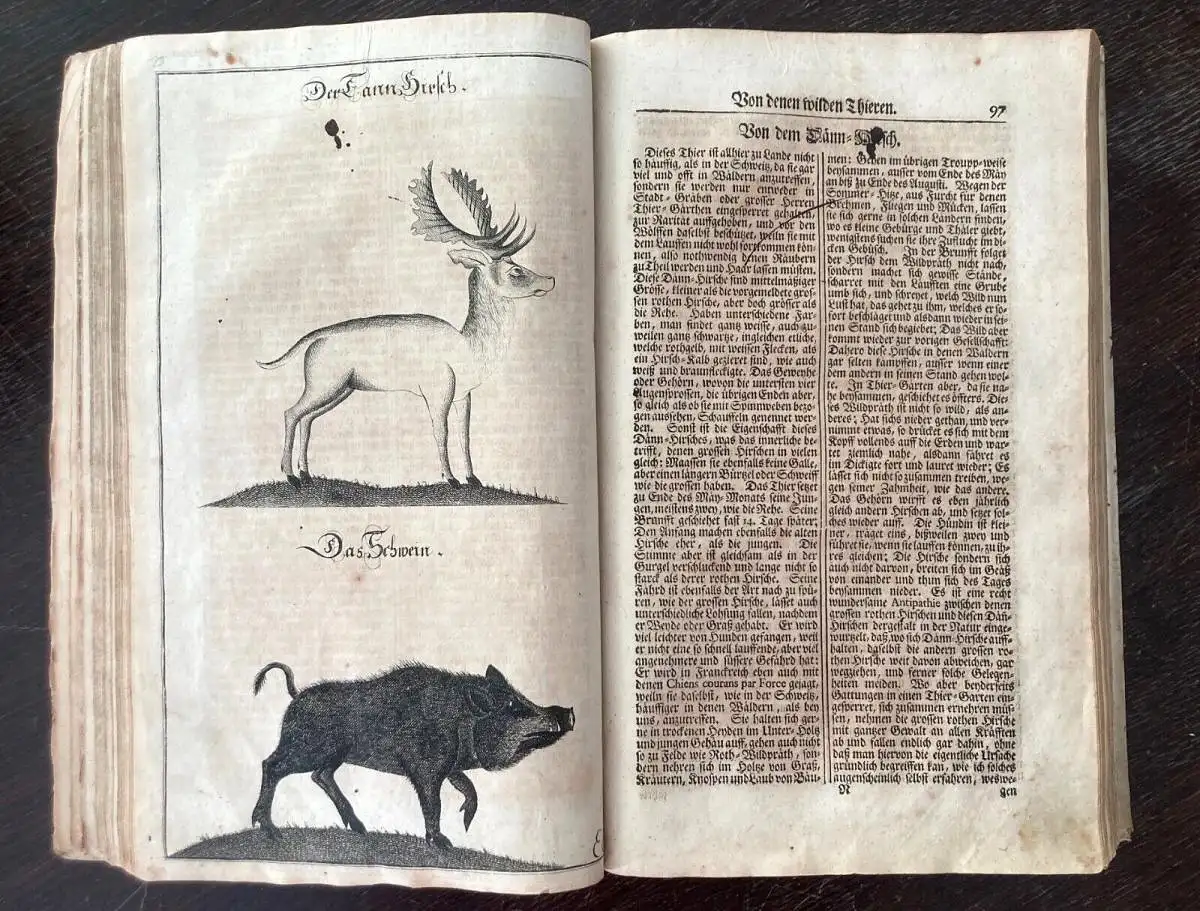 Der Tann Hirsch.
Das Schwein.
Von denen wilden Thieren. 97
Von dem Dänn-
Dieses Thier ist allhier zu Lande nicht
so häuffig, als in der Schweitz, da sie gar
viel und offt in Wäldern anzutreffen,
sondern sie werden nur entweder in
Stadt-Gräben oder grosser Herren
Thier-Gärthen eingesperret gehalten,
zur Rarität auffgehoben, und vor den
Wölffen daselbst beschützet, weiln sie mit
dem Lauffen nicht wohl fortkommen kön-
nen, also nothwendig denen Räubern
zu Theil werden und Haar lassen müsten.
Diese Dänn-Hirsche sind mittelmäßiger
Grösse, kleiner als die vorgemeldete gros-
sen rothen Hirsche, aber doch grösser als
die Rehe. Haben unterschiedene Far-
ben, man findet gantz weisse, auch zu-
weilen gantz schwartze, ingleichen etliche,
welche rothgelb, mit weissen Flecken, als
ein Hirsch-Kalb gezieret sind, wie auch
weiß und braunfleckigte. Das Geweyhe
oder Gehörn, wovon die untersten vier
Augensprossen, die übrigen Enden aber,
so gleich als ob sie mit Spinnweben bezo-
gen aussehen, Schauffeln genennet wer-
den. Sonst ist die Eigenschafft dieses
Dänn-Hirsches, was das innerliche be-
trifft, denen grossen Hirschen in vielen
gleich: Maassen sie ebenfalls keine Galle,
aber einen längern Bürtzel oder Schweiff
wie die grossen haben. Das Thier setzet
zu Ende des May-Monats seine Jun-
gen, meistens zwey, wie die Rehe. Seine
Brunfft geschiehet fast 14. Tage später;
Den Anfang machen ebenfalls die alten
Hirsche eher, als die jungen. Die
Stimme aber ist gleichsam als in der
Gurgel verschluckend und lange nicht so
starck als derer rothen Hirsche. Seine
Fährd ist ebenfalls der Art nach zu spü-
ren, wie der grossen Hirsche, lässet auch
unterschiedliche Losung fallen, nachdem
er Weyde oder Graß gehabt. Er wird
viel leichter von Hunden gefangen, weil
er nicht eine so schnell lauffende, aber viel
angenehmere und süssere Gefährd hat:
Er wird in Franckreich eben auch mit
denen Chiens courans par Force gejagt,
weiln sie daselbst, wie in der Schweitz,
häuffiger in denen Wäldern, als bey
uns, anzutreffen. Sie halten sich ger-
ne in trockenen Heyden im Unter-Holtz
und jungen Gehäu auff, gehen auch nicht
so zu Felde wie Roth-Wildpräth, son-
dern nehren sich im Holtze von Graß,
Kräutern, Knospen und Laub von Bäu-
men: Gehen im übrigen Troupp-weise
beysammen, ausser vom Ende des May
an biß zu Ende des Augusti. Wegen der
Sommer-Hitze, aus Furcht für denen
Brehmen, Fliegen und Mücken, lassen
sie sich gerne in solchen Ländern finden,
wo es kleine Gebürge und Thäler giebt,
wenigstens suchen sie ihre Zuflucht im di-
cken Gebüsch. In der Brunfft folget
der Hirsch dem Wildpräth nicht nach,
sondern machet sich gewisse Stände,
scharret mit den Läufften eine Grube
umb sich, und schreyet, welch Wild nun
Lust hat, das gehet zu ihm, welches er so-
fort beschläget und alsdann wieder in sei-
nen Stand sich begiebet; Das Wild aber
kommt wieder zur vorigen Gesellschafft:
Dahero diese Hirsche in denen Wäldern
gar selten kämpffen, ausser wenn einer
dem andern in seinen Stand gehen wol-
te. In Thier-Garten aber, da sie na-
he beysammen, geschiehet es öffters. Die-
ses Wildpräth ist nicht so wild, als an-
deres; Hat sichs nieder gethan, und ver-
nimmt etwas, so drücket es sich mit dem
Kopff vollends auff die Erden und war-
tet ziemlich nahe, alsdann fähret es
im Dickigte fort und lauret wieder; Es
lässet sich nicht so zusammen treiben, we-
gen seiner Zahmheit, wie das andere.
Das Gehörn wirfft es eben jährlich
gleich andern Hirschen ab, und setzet sol-
ches wieder auff. Die Hündin ist klei-
ner, träget eins, bißweilen zwey und
führet sie, wenn sie lauffen können, zu ih-
res gleichen; Die Hirsche sondern sich
auch nicht davon, breiten sich im Geäß
von einander und thun sich des Tages
beysammen nieder. Es ist eine recht
wundersame Antipathie zwischen denen
grossen rothen Hirschen und diesen Dän-
Hirschen dergestalt in der Natur einge-
wurtzelt, daß, wo sich Dänn-Hirsche auff-
halten, daselbst die andern grossen ro-
then Hirsche weit davon abweichen, gar
wegziehen, und ferner solche Gelegen-
heiten meiden. Wo aber beyderseits
Gattungen in einen Thier-Garten ein-
gesperret, sich zusammen ernehren müs-
sen, nehmen die grossen rothen Hirsche
mit gantzer Gewalt an allen Kräfften
ab und fallen endlich gar dahin, ohne
daß man hiervon die eigentliche Ursache
gründlich begreiffen kan, wie ich solches
augenscheinlich selbst erfahren, weswe-
N gen